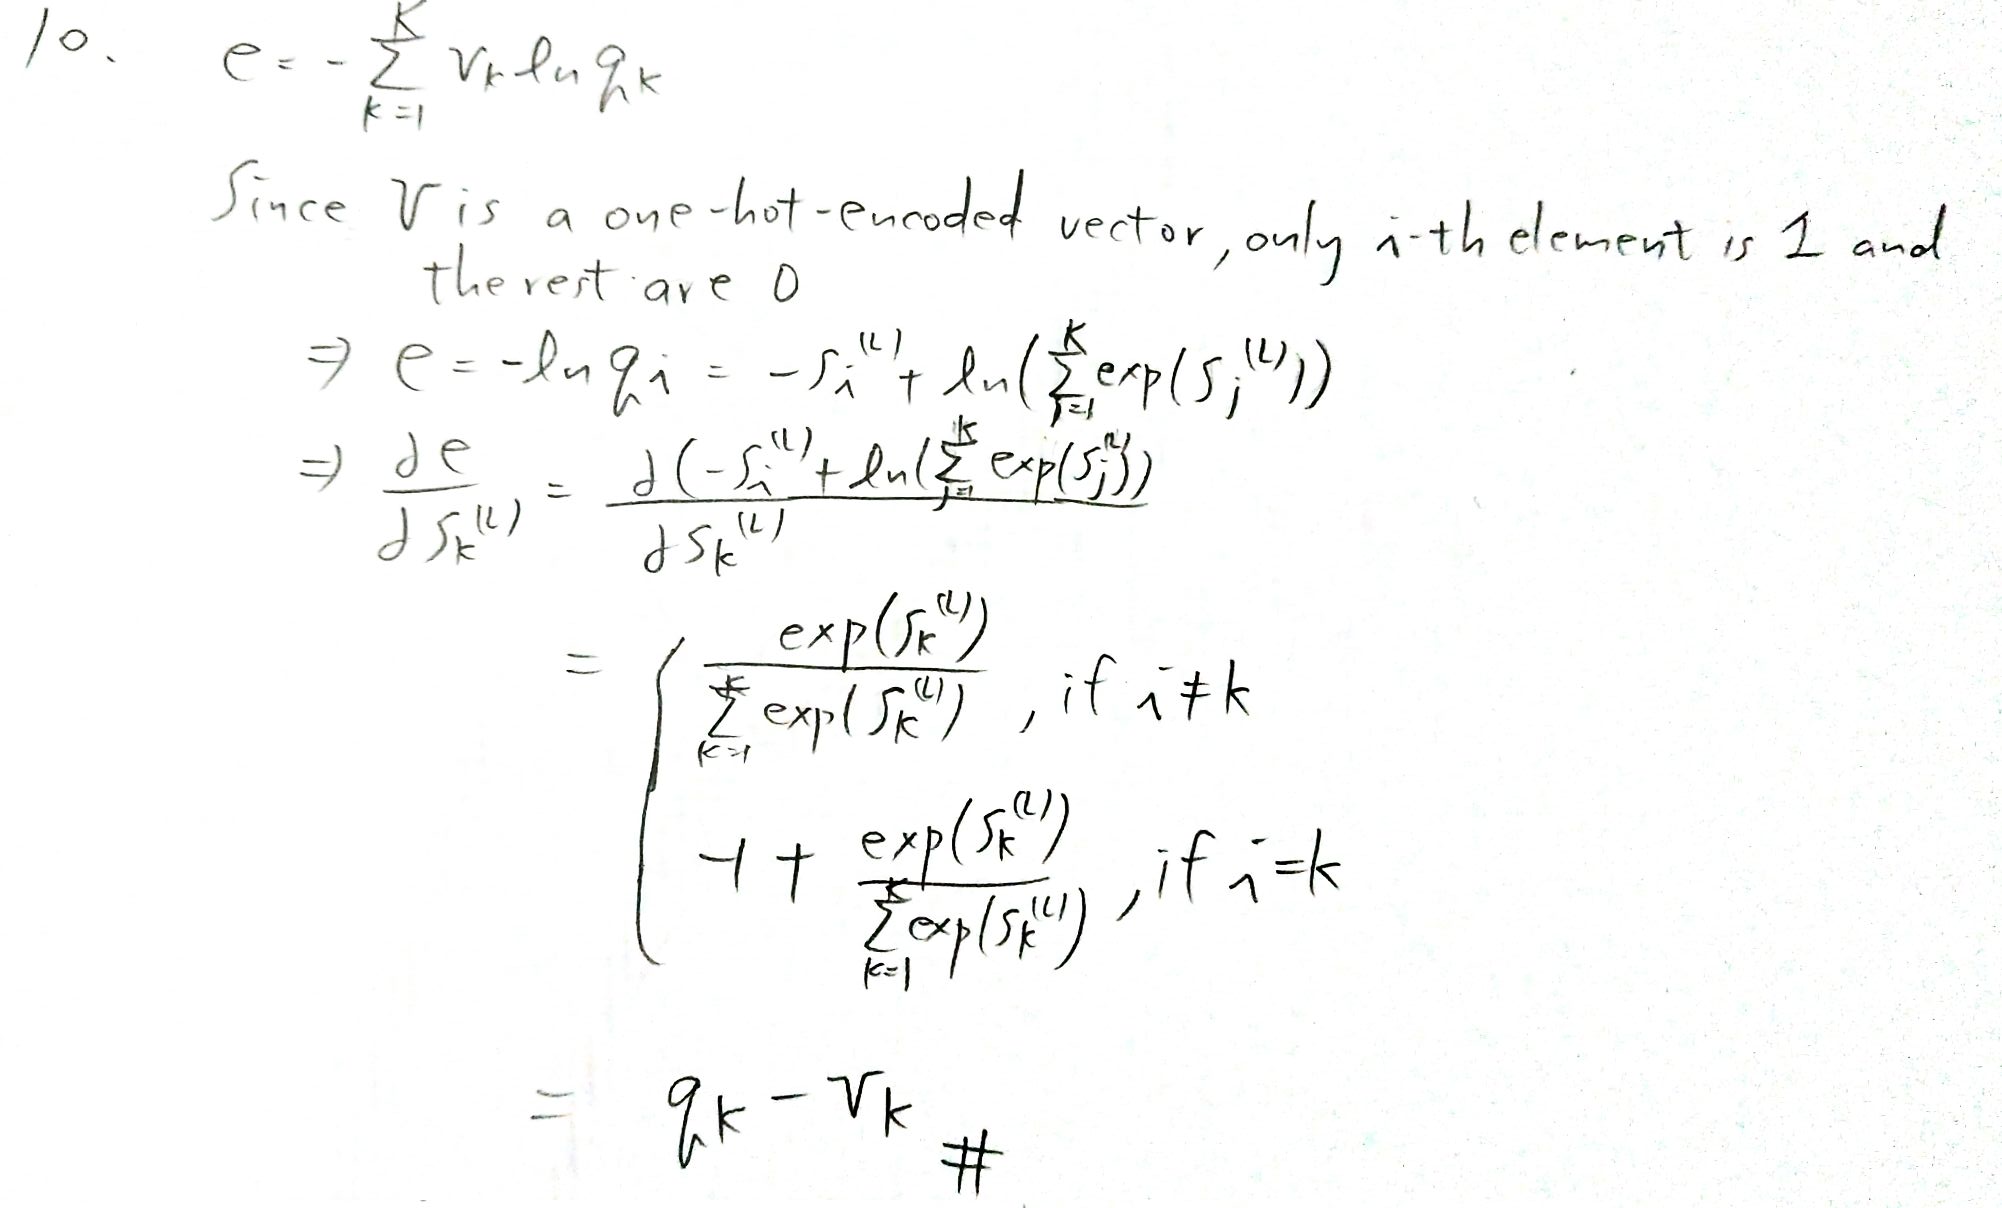 10. e = - \sum_{k=1}^{K} v_k ln q_k
Since V is a one-hot-encoded vector, only i-th element is 1 and
the rest are 0
⇒ e = -ln q_i = -s_i^{(L)} + ln(\sum_{j=1}^{K} exp(s_j^{(L)}))
⇒ \frac{∂e}{∂s_k^{(L)}} = \frac{∂(-s_i^{(L)} + ln(\sum_{j=1}^{K} exp(s_j^{(L)}))}{∂s_k^{(L)}}
= { \frac{exp(s_k^{(L)})}{\sum_{k=1}^{K} exp(s_k^{(L)})} , if i ≠ k
-1 + \frac{exp(s_k^{(L)})}{\sum_{k=1}^{K} exp(s_k^{(L)})} , if i = k
= q_k - v_k #